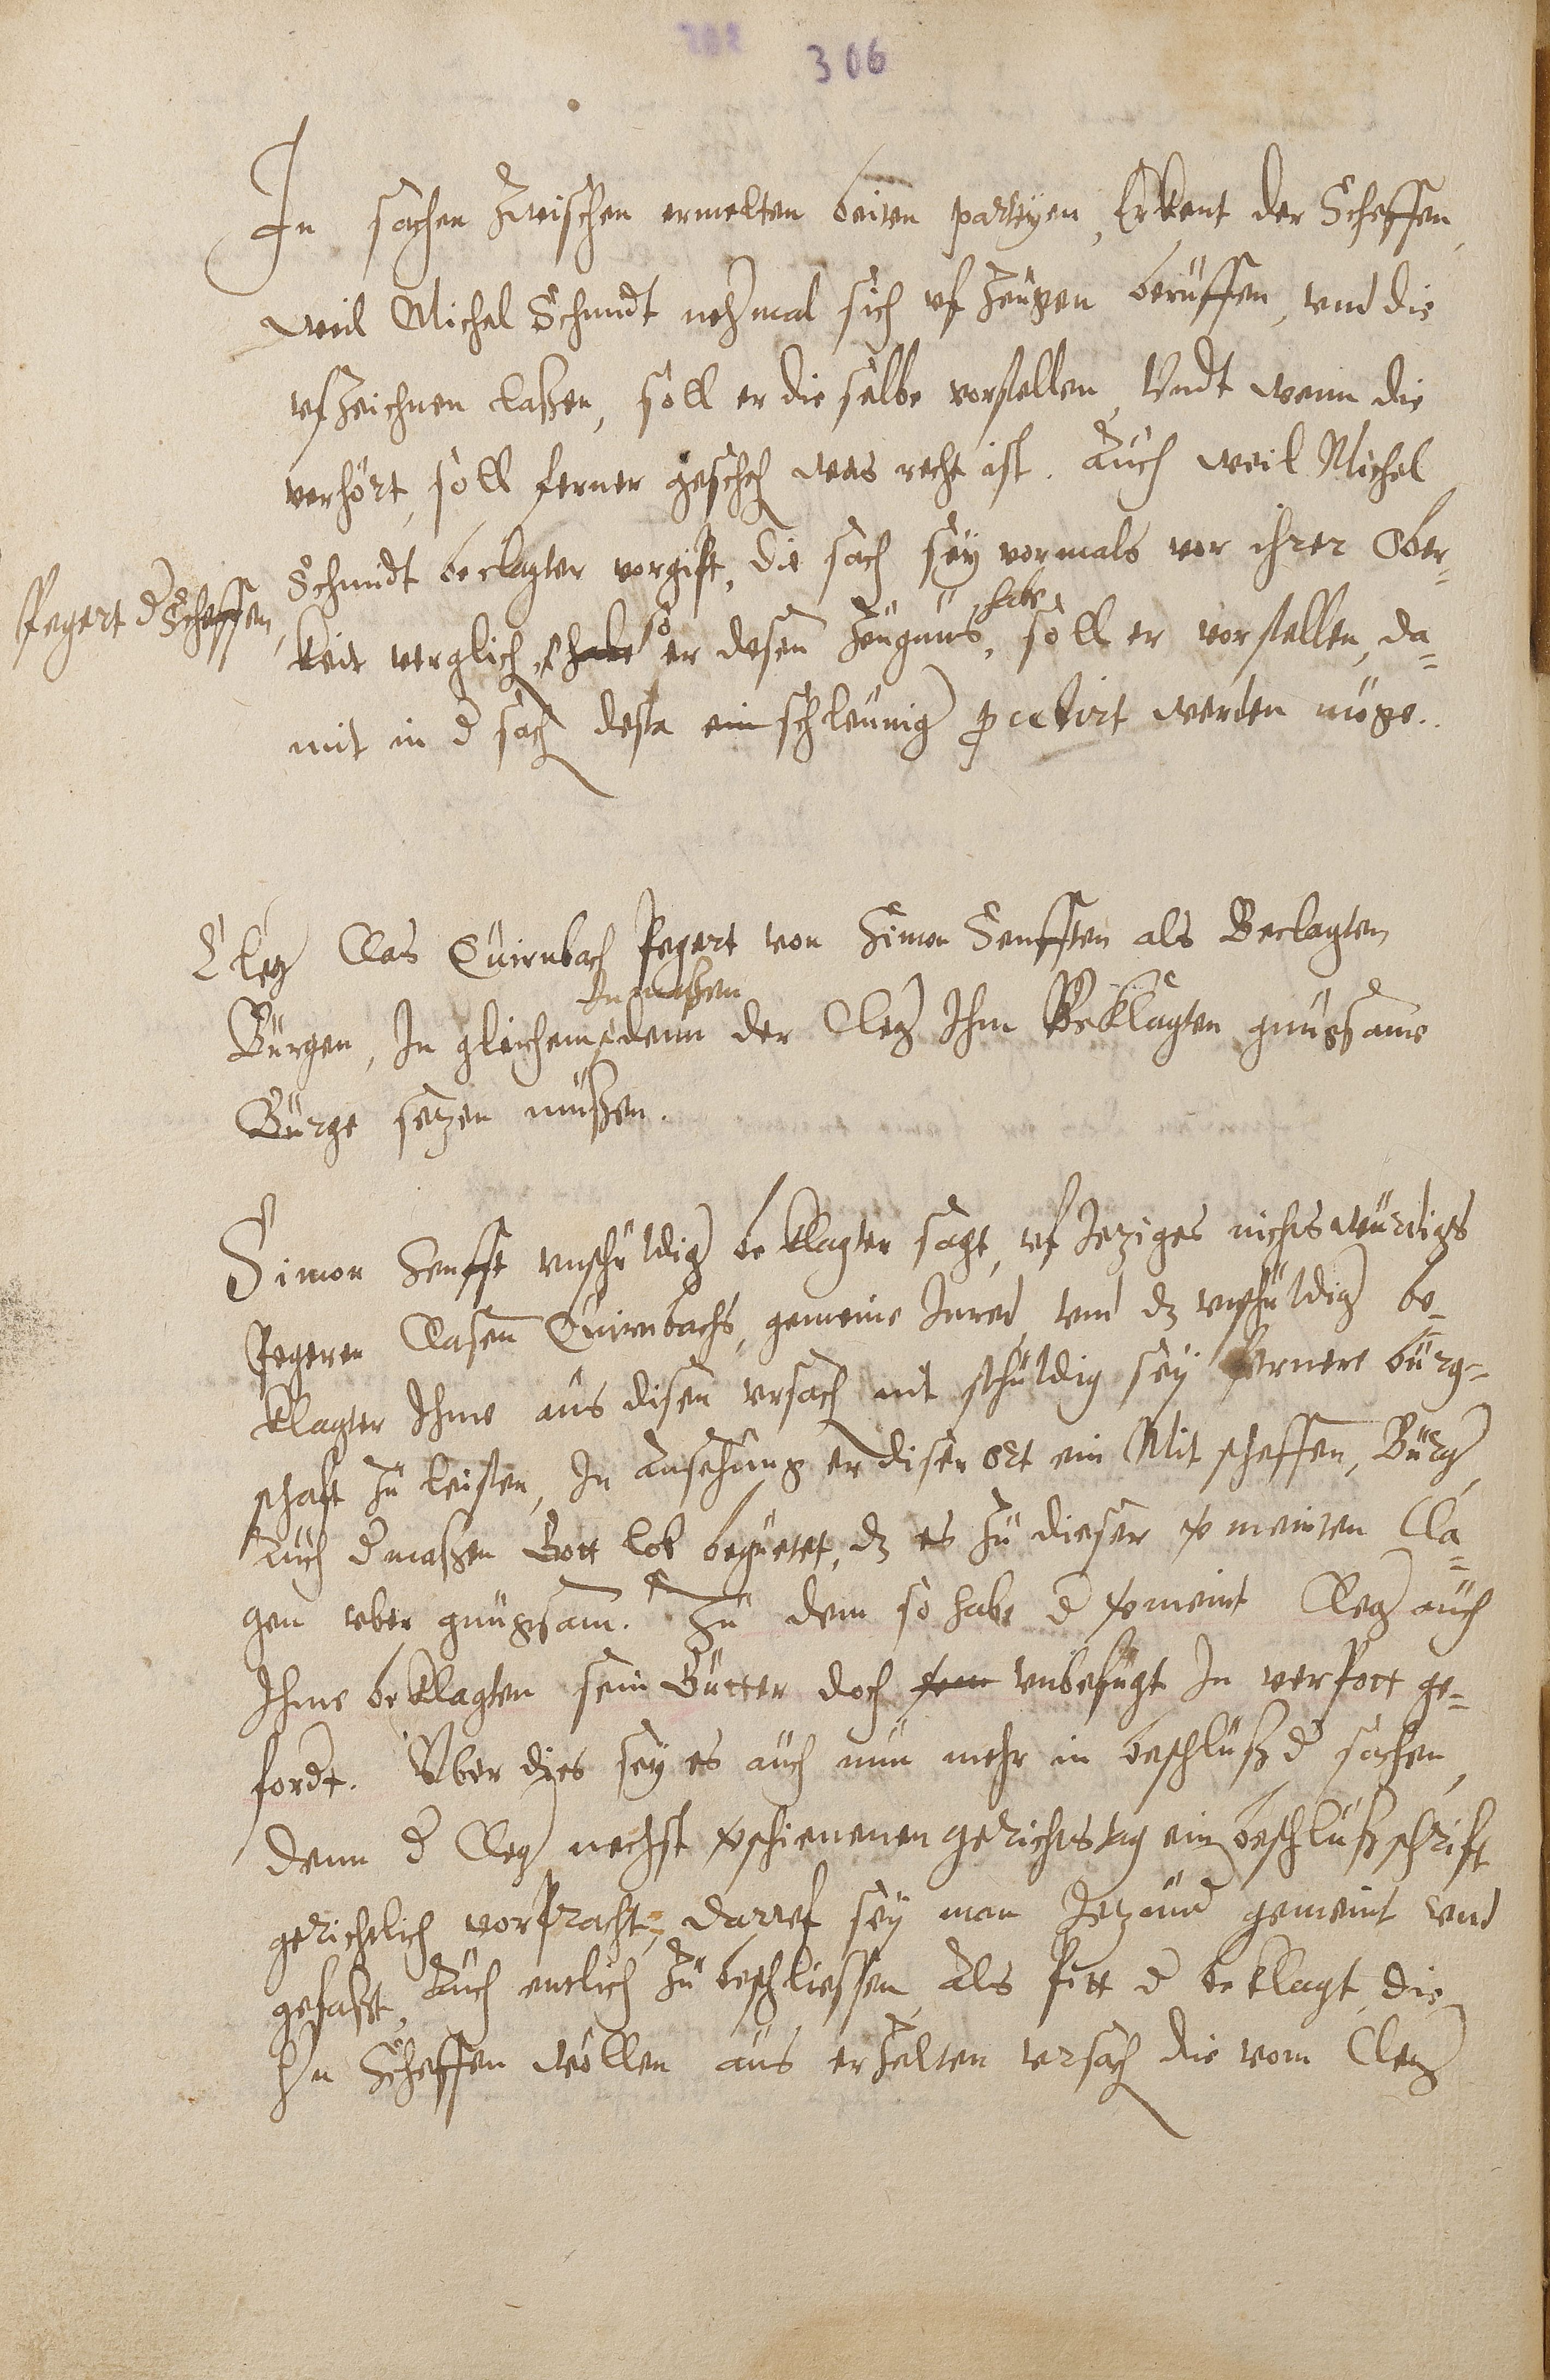 306
In sachen zwischen ermelten beiden partyen, Erkent der Scheffen,
weil Michel Schmidt nochmal sich vf zeugen beruffen, vnd die
vfzeichnen laßen, soll er die selbe vorstellen, Vndt wenn die
verhört, soll ferner gescheh was recht ist. Auch weil Michel
Schmidt beclagter vorgift, die sach sey vormals vor ihrer Ober-
begert d Scheffen,
keit verglich, habe so er desen zeugnus habe, soll er vorstellen, da=
mit in d sach desta ein schleunig procedirt werden möge.
Cleg Clas Quirnbach begert von Simon Senfften als Beclagten
Bürgen, In gleichem In maßen denn der Cleg Ihm Beklagten gnugsame
Bürge setzen müßen.
Simon Senfft vnschuldig beklagter sagt, vf Jeziges nichtswürdigs
begeren Clasen Quirnbachs, gemeine Inred, vnd dz vnschuldig be=
klagter Ihme aus disen vrsach nit schuldig sey fernere bürg=
schaft zu leisten, In ansehung er diser ort ein Mit scheffen, Bürg,
Auch dmaßen Gott lob begüetet, dz es zu dieser vermeinten Cla=
gen vber gnugsam. Zu dem so habe d vermeint Cleg auch
Ihme beklagten sein Gütter doch vnbefugt In verbott ge=
fordt. Vber dies sey es auch nun mehr in beschluß d sachen,
denn d Cleg nechst verschienenen gerichtstag ein beschluß schrift
gerichtlich vorbracht, daruf sey man Jetzund gemeint vnd
gefaßt, Auch entlich zu beschliessen, Als bitt d beklagt, die
Hn Scheffen wöllen aus erzelten vrsach die vom Cleg